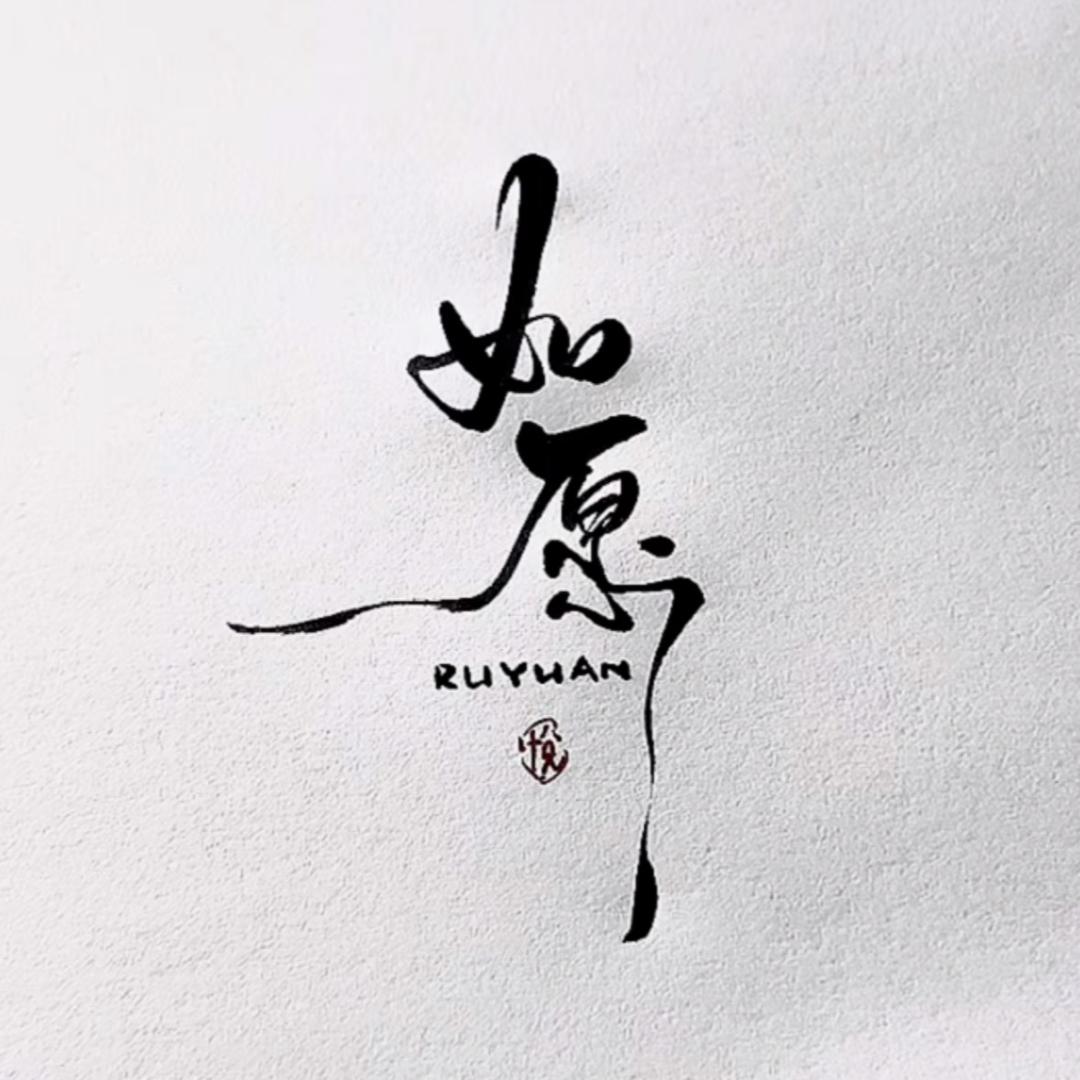 如
愿
RUYUAN
悦